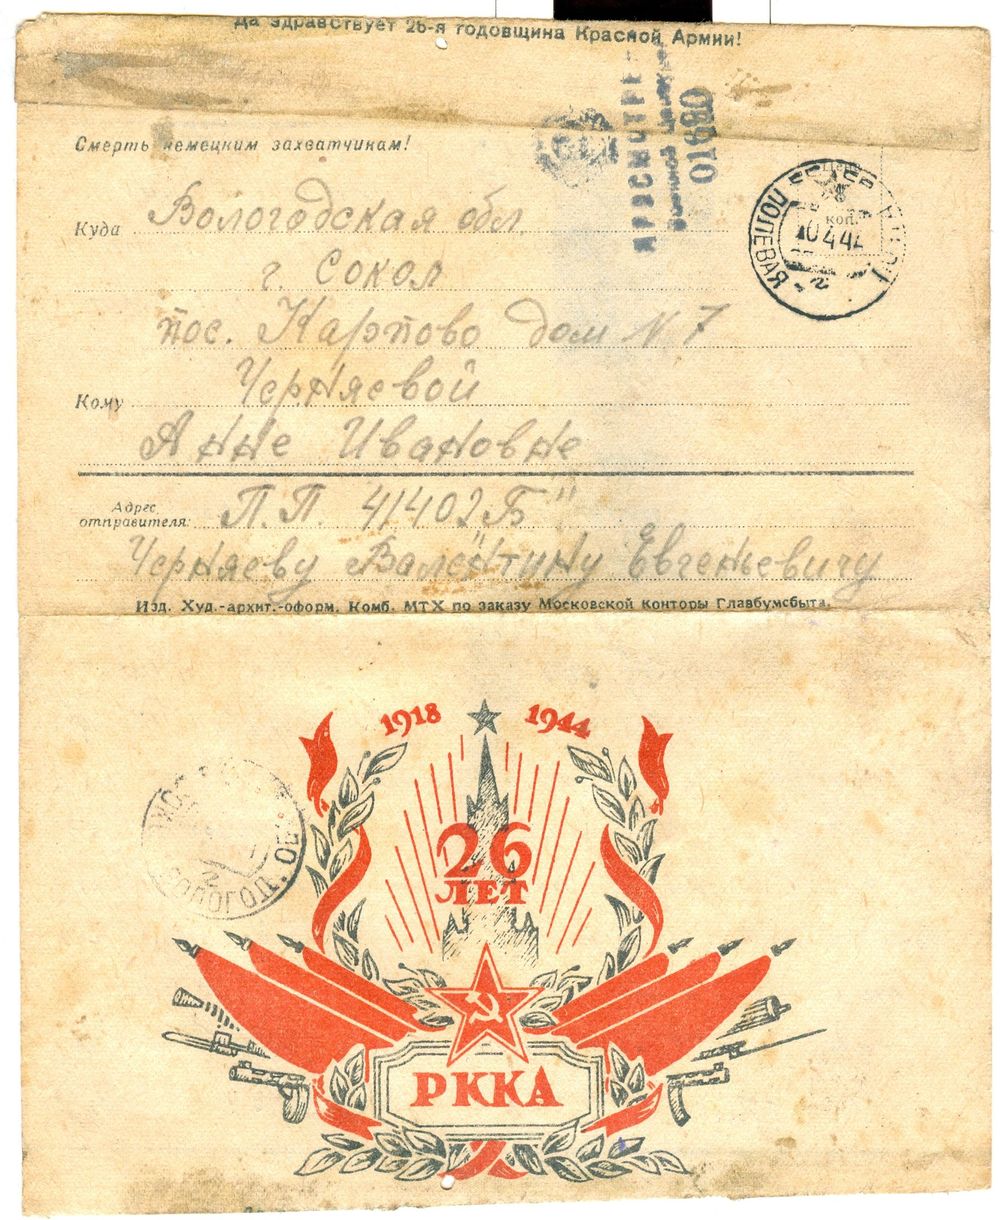 Да здравствует 26-я годовщина Красной Армии!
Смерть немецким захватчикам!
ПРОСМОТРЕНО
Военной Цензурой
01680
Куда Вологодская обл.
г. Сокол
пос. Карпово дом N 7
Кому Черняевой
Анне Ивановне
коп.
ПОЛЕВАЯ ПОЧТА
10 4 44
Адрес отправителя: П.П. 41402 „Б"
Черняеву Валентину Евгеньевичу
Изд. Худ.-архит.-оформ. Комб. МТХ по заказу Московской конторы Главбумсбыта.
1918 1944
26
ЛЕТ
РККА
СОКОЛ
ВОЛОГОД. ОБ